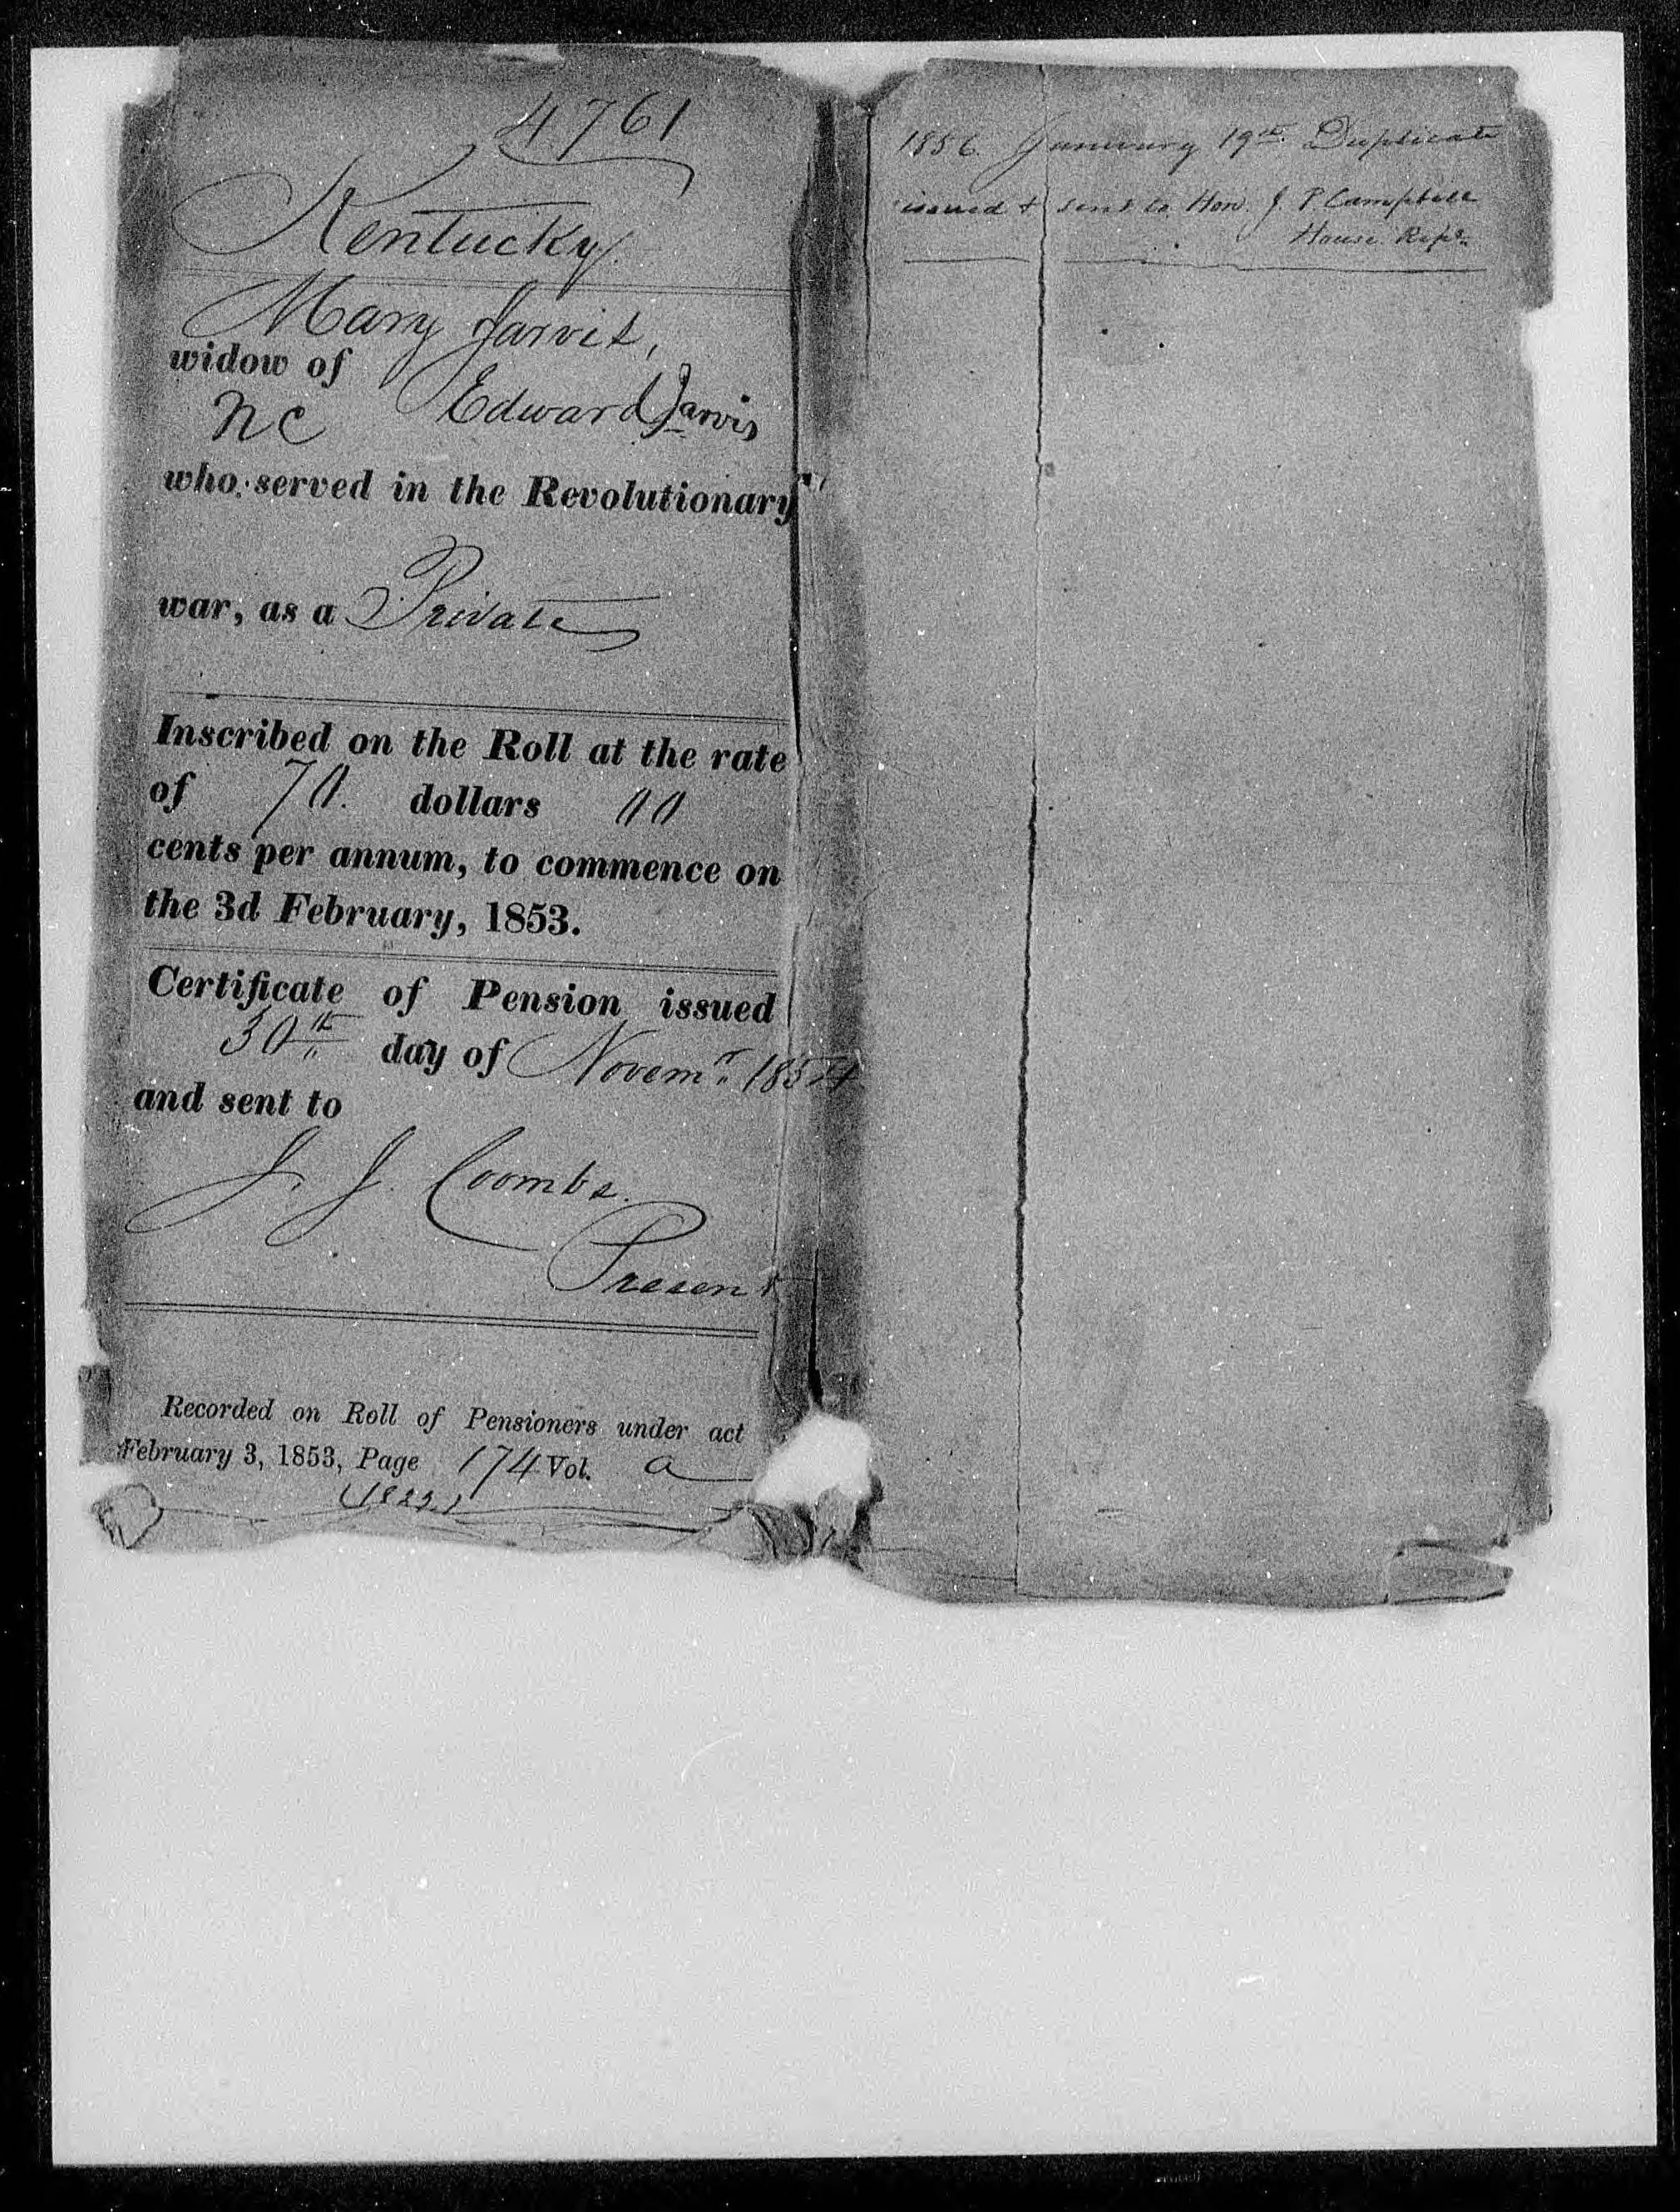 4761
Kentucky.
Mary Jarvis,
widow of
NC Edward Jarvis
who served in the Revolutionary
war, as a Private
Inscribed on the Roll at the rate
of 70. dollars 00
cents per annum, to commence on
the 3d February, 1853.
Certificate of Pension issued
30th day of Novemr. 1854
and sent to
J. J. Coombs.
Present
Recorded on Roll of Pensioners under act
February 3, 1853, Page 174 Vol. a
1856. January 19th. Duplicate
issued & sent to Hon. J. P. Campbell
House Reps.